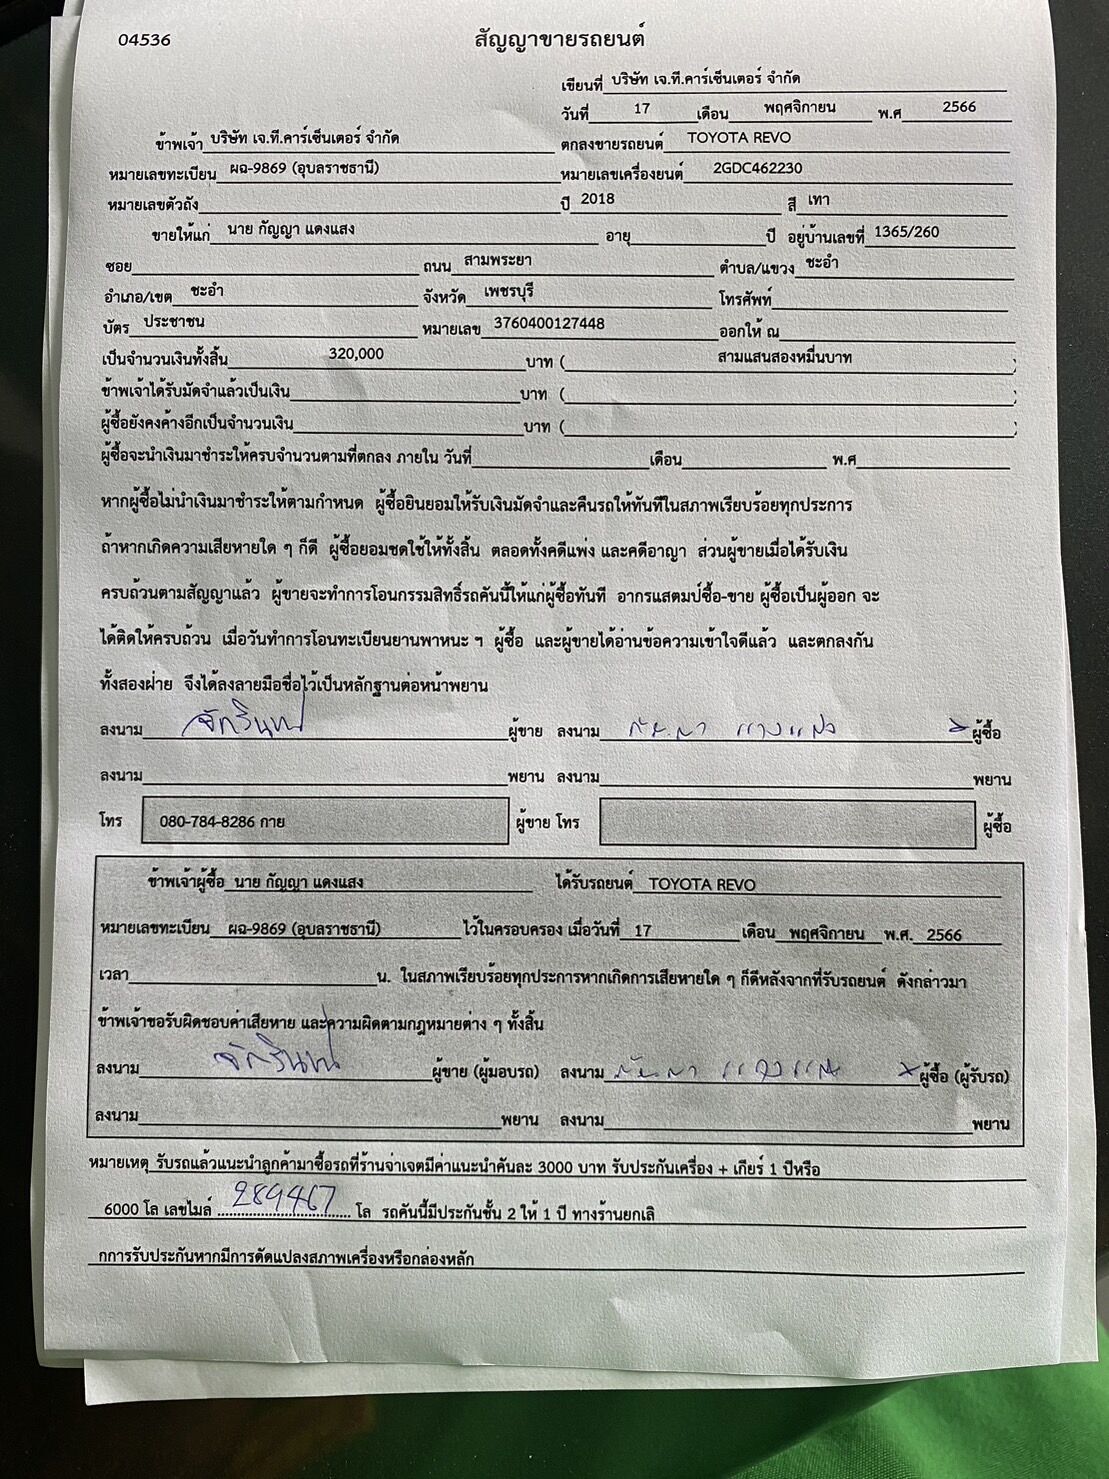 04536 สัญญาขายรถยนต์
เขียนที่ บริษัท เจ.ที.คาร์เซ็นเตอร์ จำกัด
วันที่ 17 เดือน พฤศจิกายน พ.ศ 2566
ข้าพเจ้า บริษัท เจ.ที.คาร์เซ็นเตอร์ จำกัด ตกลงขายรถยนต์ TOYOTA REVO
หมายเลขทะเบียน ผฉ-9869 (อุบลราชธานี) หมายเลขเครื่องยนต์ 2GDC462230
หมายเลขตัวถัง ปี 2018 สี เทา
ขายให้แก่ นาย กัญญา แดงแสง อายุ ปี อยู่บ้านเลขที่ 1365/260
ซอย ถนน สามพระยา ตำบล/แขวง ชะอำ
อำเภอ/เขต ชะอำ จังหวัด เพชรบุรี โทรศัพท์
บัตร ประชาชน หมายเลข 3760400127448 ออกให้ ณ
เป็นจำนวนเงินทั้งสิ้น 320,000 บาท ( สามแสนสองหมื่นบาท )
ข้าพเจ้าได้รับมัดจำแล้วเป็นเงิน บาท ( )
ผู้ซื้อยังคงค้างอีกเป็นจำนวนเงิน บาท ( )
ผู้ซื้อจะนำเงินมาชำระให้ครบจำนวนตามที่ตกลง ภายใน วันที่ เดือน พ.ศ
หากผู้ซื้อไม่นำเงินมาชำระให้ตามกำหนด ผู้ซื้อยินยอมให้รับเงินมัดจำและคืนรถให้ทันทีในสภาพเรียบร้อยทุกประการ
ถ้าหากเกิดความเสียหายใด ๆ ก็ดี ผู้ซื้อยอมชดใช้ให้ทั้งสิ้น ตลอดทั้งคดีแพ่ง และคดีอาญา ส่วนผู้ขายเมื่อได้รับเงิน
ครบถ้วนตามสัญญาแล้ว ผู้ขายจะทำการโอนกรรมสิทธิ์รถคันนี้ให้แก่ผู้ซื้อทันที อากรแสตมป์ซื้อ-ขาย ผู้ซื้อเป็นผู้ออก จะ
ได้ติดให้ครบถ้วน เมื่อวันทำการโอนทะเบียนยานพาหนะ ฯ ผู้ซื้อ และผู้ขายได้อ่านข้อความเข้าใจดีแล้ว และตกลงกัน
ทั้งสองฝ่าย จึงได้ลงลายมือชื่อไว้เป็นหลักฐานต่อหน้าพยาน
ลงนาม จักรินทร์ ผู้ขาย ลงนาม กัญญา แดงแสง ผู้ซื้อ
ลงนาม พยาน ลงนาม พยาน
โทร 080-784-8286 กาย ผู้ขาย โทร ผู้ซื้อ
ข้าพเจ้าผู้ซื้อ นาย กัญญา แดงแสง ได้รับรถยนต์ TOYOTA REVO
หมายเลขทะเบียน ผฉ-9869 (อุบลราชธานี) ไว้ในครอบครอง เมื่อวันที่ 17 เดือน พฤศจิกายน พ.ศ. 2566
เวลา น. ในสภาพเรียบร้อยทุกประการหากเกิดการเสียหายใด ๆ ก็ดีหลังจากที่รับรถยนต์ ดังกล่าวมา
ข้าพเจ้าขอรับผิดชอบค่าเสียหาย และความผิดตามกฎหมายต่าง ๆ ทั้งสิ้น
ลงนาม จักรินทร์ ผู้ขาย (ผู้มอบรถ) ลงนาม กัญญา แดงแสง ผู้ซื้อ (ผู้รับรถ)
ลงนาม พยาน ลงนาม พยาน
หมายเหตุ รับรถแล้วแนะนำลูกค้ามาซื้อรถที่ร้านจ่าเจตมีค่าแนะนำคันละ 3000 บาท รับประกันเครื่อง + เกียร์ 1 ปีหรือ
6000 โล เลขไมล์ 289467 โล รถคันนี้มีประกันชั้น 2 ให้ 1 ปี ทางร้านยกเลิ
กการรับประกันหากมีการดัดแปลงสภาพเครื่องหรือกล่องหลัก